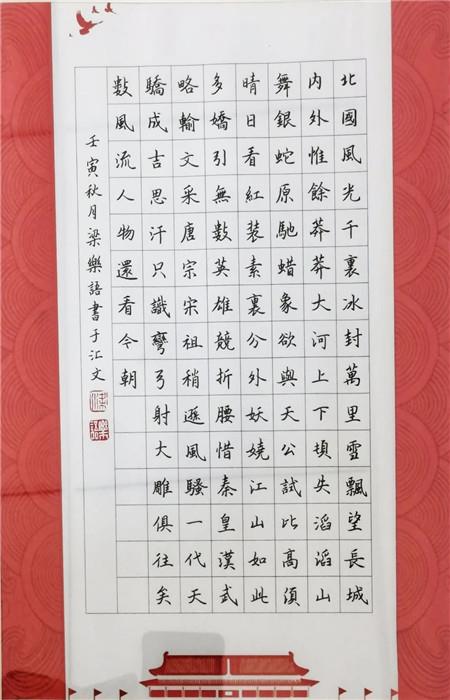 北國風光千裏冰封萬里雪飄望長城
内外惟餘莽莽大河上下頃失滔滔山
舞銀蛇原馳蜡象欲與天公試比高須
晴日看紅装素裏分外妖嬈江山如此
多嬌引無數英雄競折腰惜秦皇漢武
略輸文采唐宗宋祖稍遜風騷一代天
驕成吉思汗只識彎弓射大雕俱往矣
數風流人物還看今朝
壬寅秋月梁樂語書于汇文